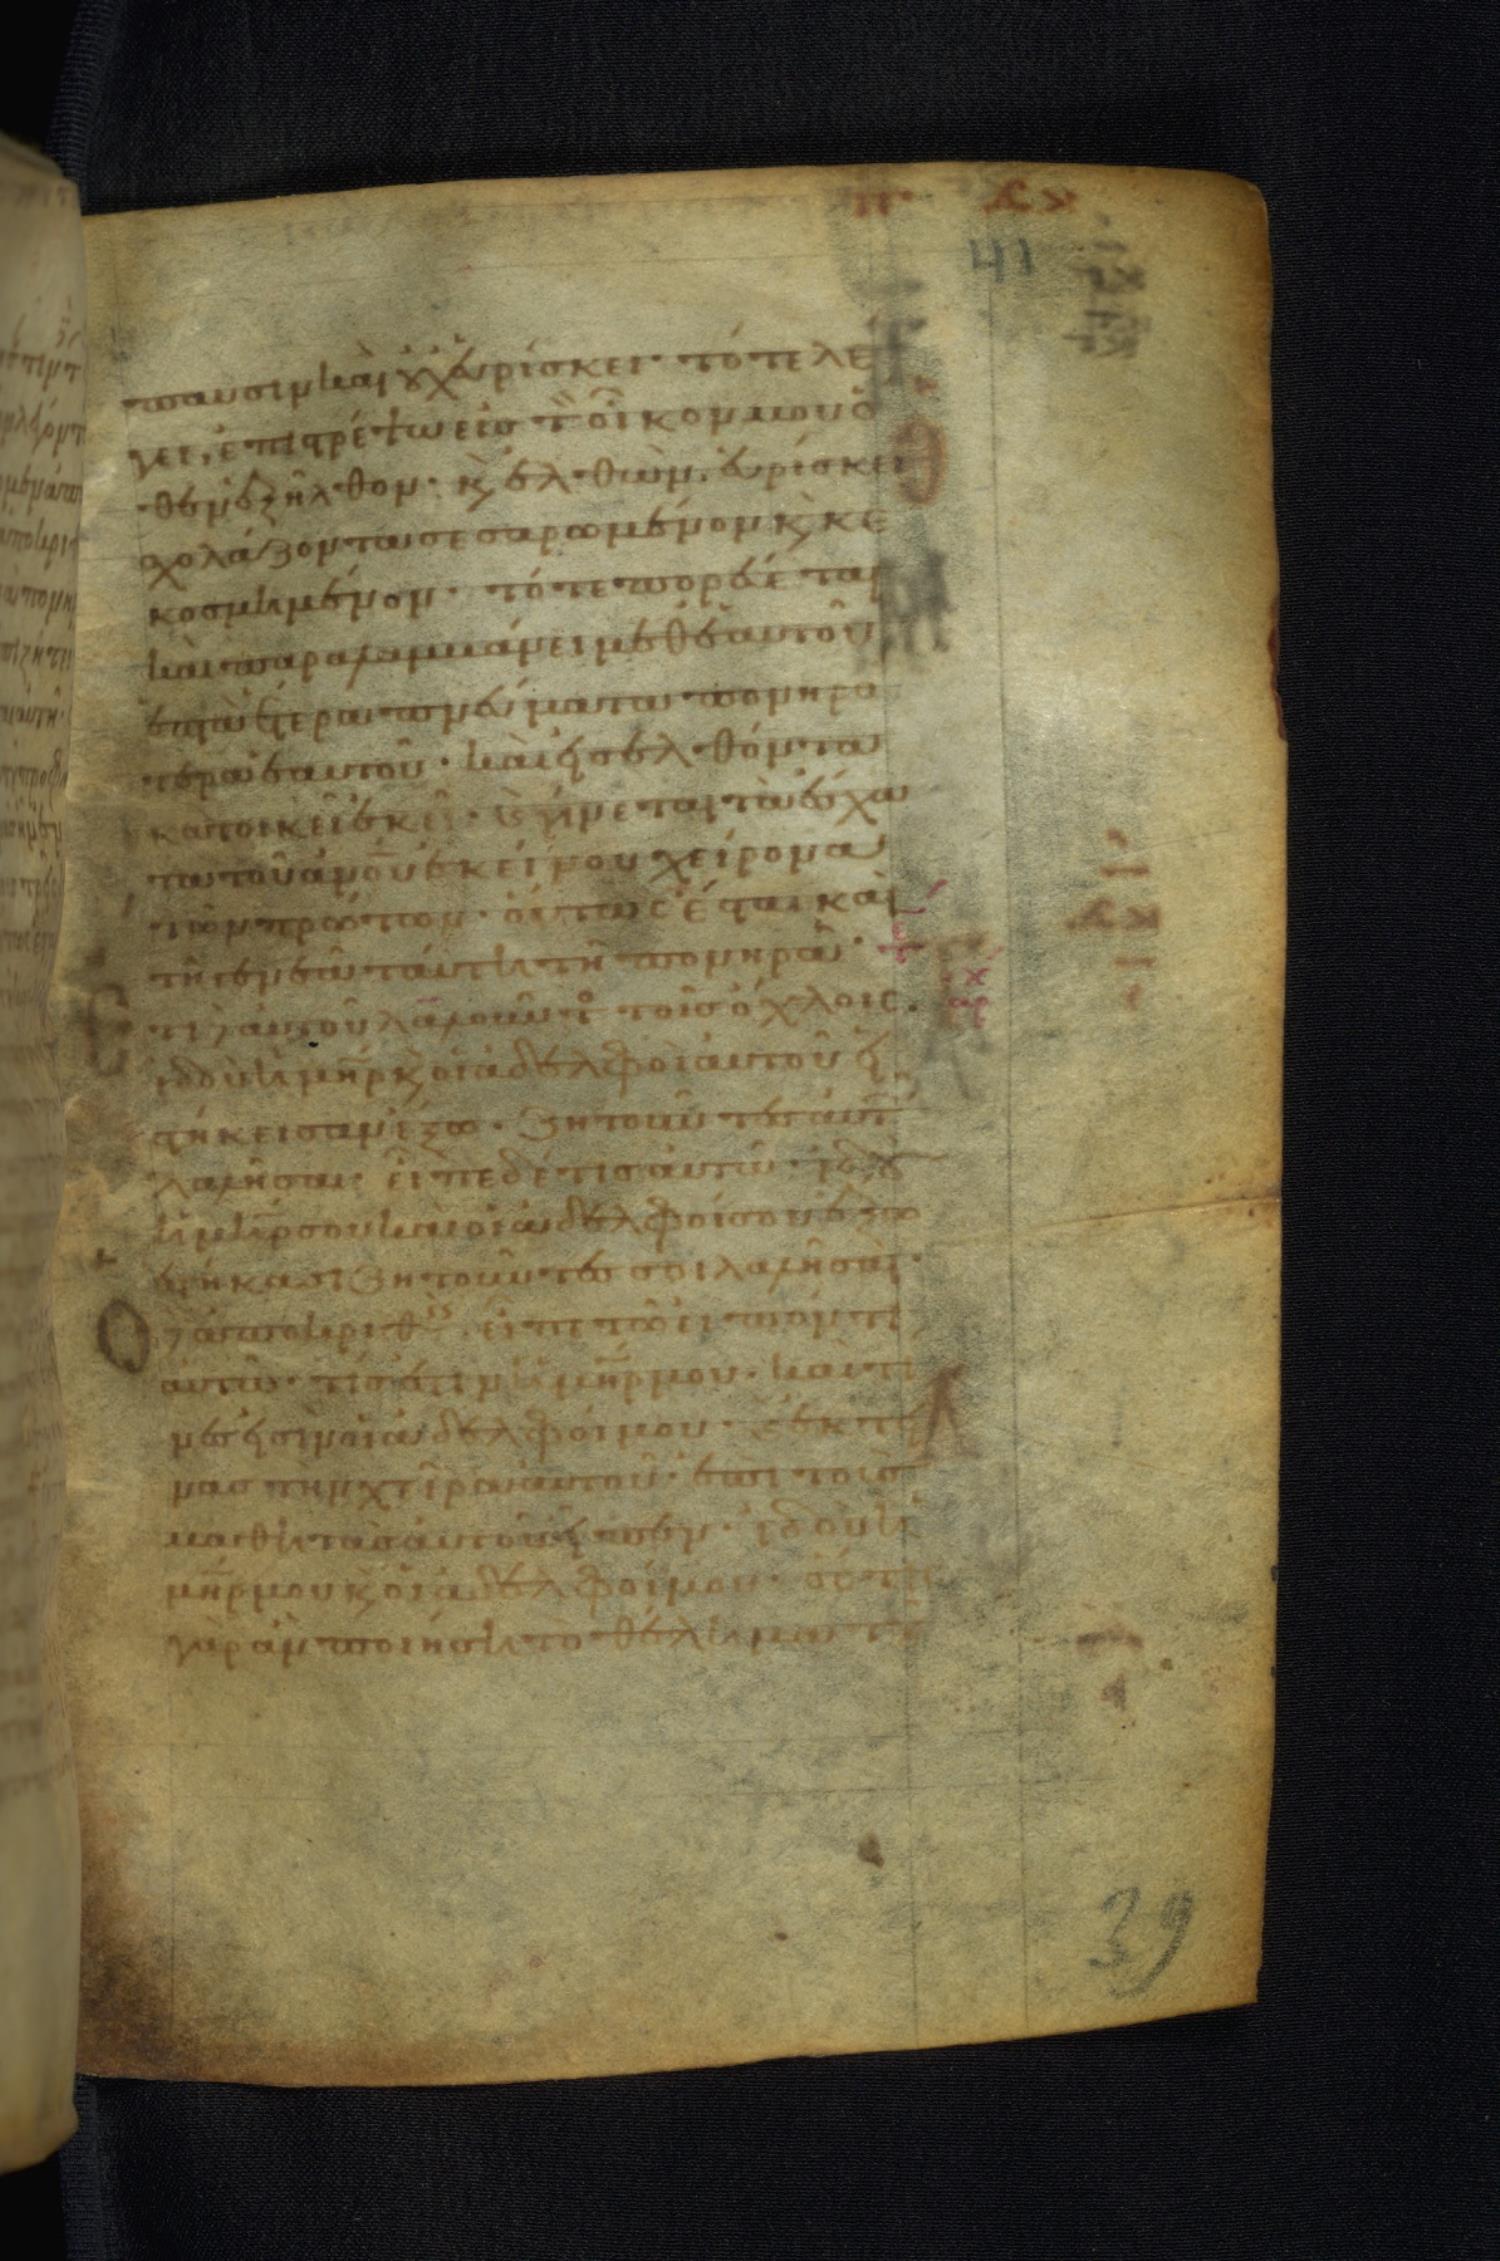 41
παυσιν καὶ οὐχ εὑρίσκει· τότε λέ
γει, ἐπιστρέψω εἰς τὸν οἶκον μου ὅ
θεν ἐξῆλθον· κ ἐλθὼν, εὑρίσκει
σχολάζοντα σεσαρωμένον κ κε
κοσμημένον· τότε πορεύεται
καὶ παραλαμβάνει μεθ ἑαυτοῦ
ἑπτὰ ἕτερα πνεύματα πονηρό
τερα ἑαυτοῦ· καὶ εἰσελθόντα
κατοικεῖ ἐκεῖ· κ γίνεται τὰ ἔσχα
τα τοῦ ἀνου ἐκείνου χείρονα
τῶν πρώτων· οὕτως ἔσται καὶ
τῆ γενεᾶ ταύτη τῆ πονηρᾶ·
Ετι δὲ αὐτοῦ λαλοῦντος τοῖς ὄχλοις·
ἰδοὺ ἡ μηρ κ οἱ ἀδελφοὶ αὐτοῦ εἱ
στήκεισαν ἔξω· ζητοῦντες αὐτῶ
λαλῆσαι· εἶπε δέ τις αὐτῶ· ἰδοὺ
ἡ μηρ σου καὶ οἱ ἀδελφοί σου ἔξω
ἑστήκασι ζητοῦντές σοι λαλῆσαι·
Ο δὲ ἀποκριθεὶς εἶπε τῶ εἰπόντι
αὐτῶ· τίς ἐστιν ἡ μηρ μου· καὶ τί
νες εἰσὶν οἱ ἀδελφοί μου· κ ἐκτεί
νας τὴν χεῖρα αὐτοῦ ἐπὶ τοὺς
μαθητὰς αὐτοῦ εἶπεν· ἰδοὺ ἡ
μηρ μου κ οἱ ἀδελφοί μου· ὅστις
γὰρ ἂν ποιήση τὸ θέλημα τοῦ
39